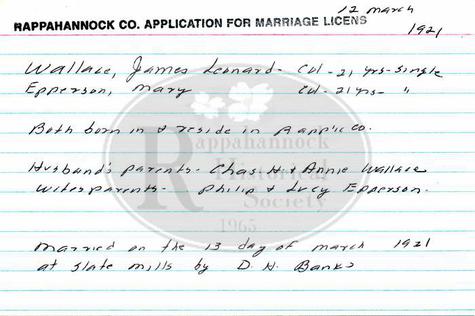 12 march
RAPPAHANNOCK CO. APPLICATION FOR MARRIAGE LICENS
1921
Wallace, James Leonard - Col - 21 yrs - single
Epperson, Mary Col - 21 yrs - "
Both born in & reside in Rapp'k co.
Husband's parents - Chas. H. & Annie Wallace
Wifes parents - Philip & Lucy Epperson.
Married on the 13 day of march 1921
at Slate mills by D. H. Banks
Rappahannock
Historical
Society
1965